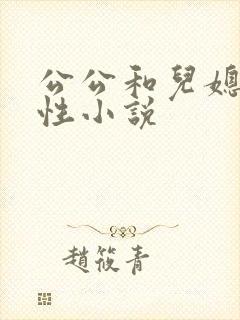 公公和兒媳
性小說
趙筱青